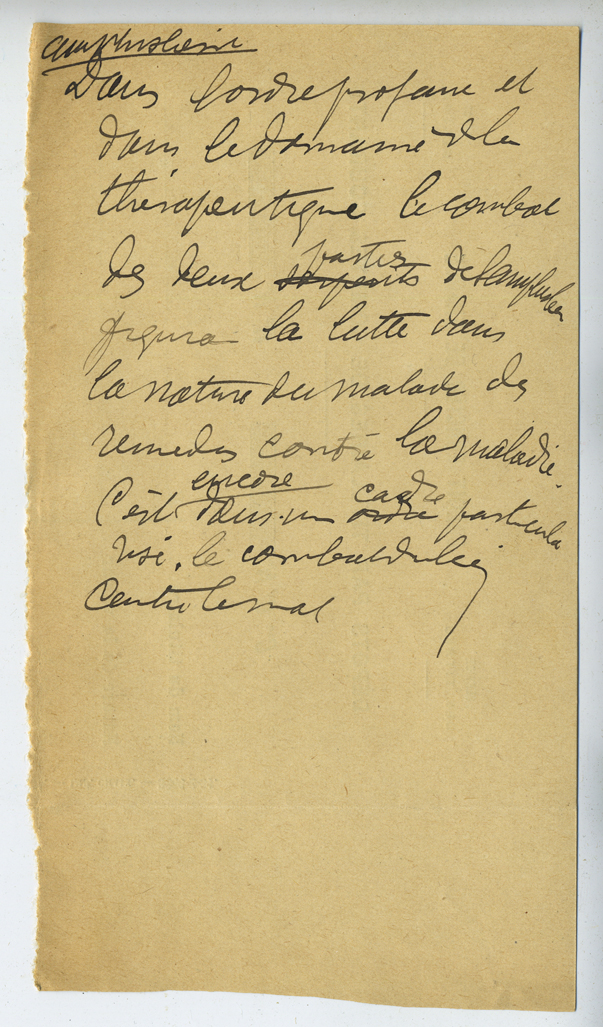 amphisbène
Dans l'ordre profane et
dans le domaine de la
thérapeutique le combat
parties
des deux serpents de l'amphisbène
figura la lutte dans
la nature du malade des
remèdes contre la maladie.
encore cadre
C'est dans un ordre particula
risé, le combat du bien
contre le mal